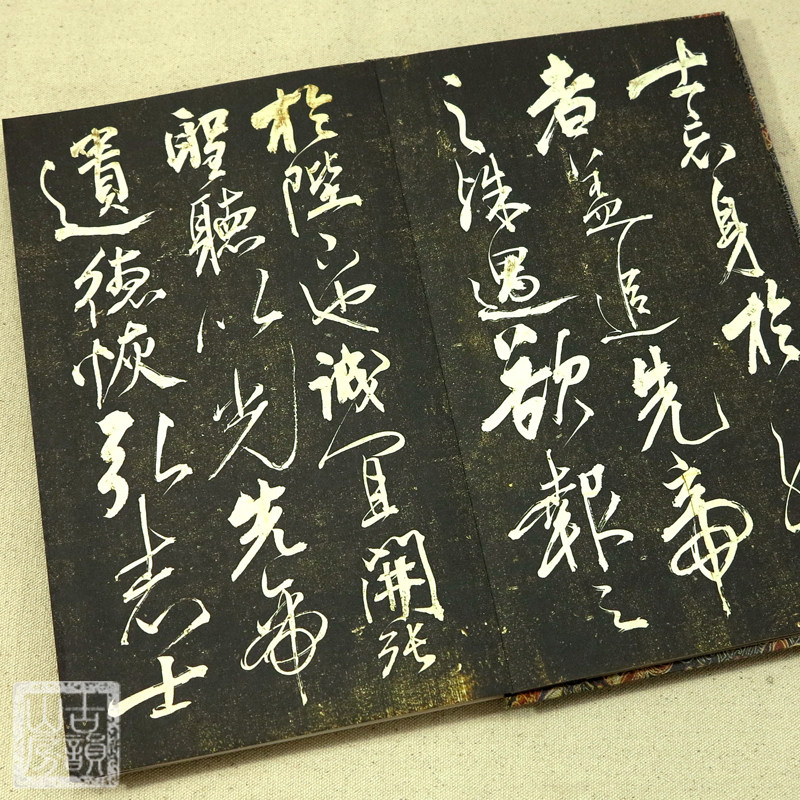 士忘身於
者蓋追先帝
之殊遇欲報之
於陛下也誠宜開張
聖聽以光先帝
遺德恢弘志士
古韻山房